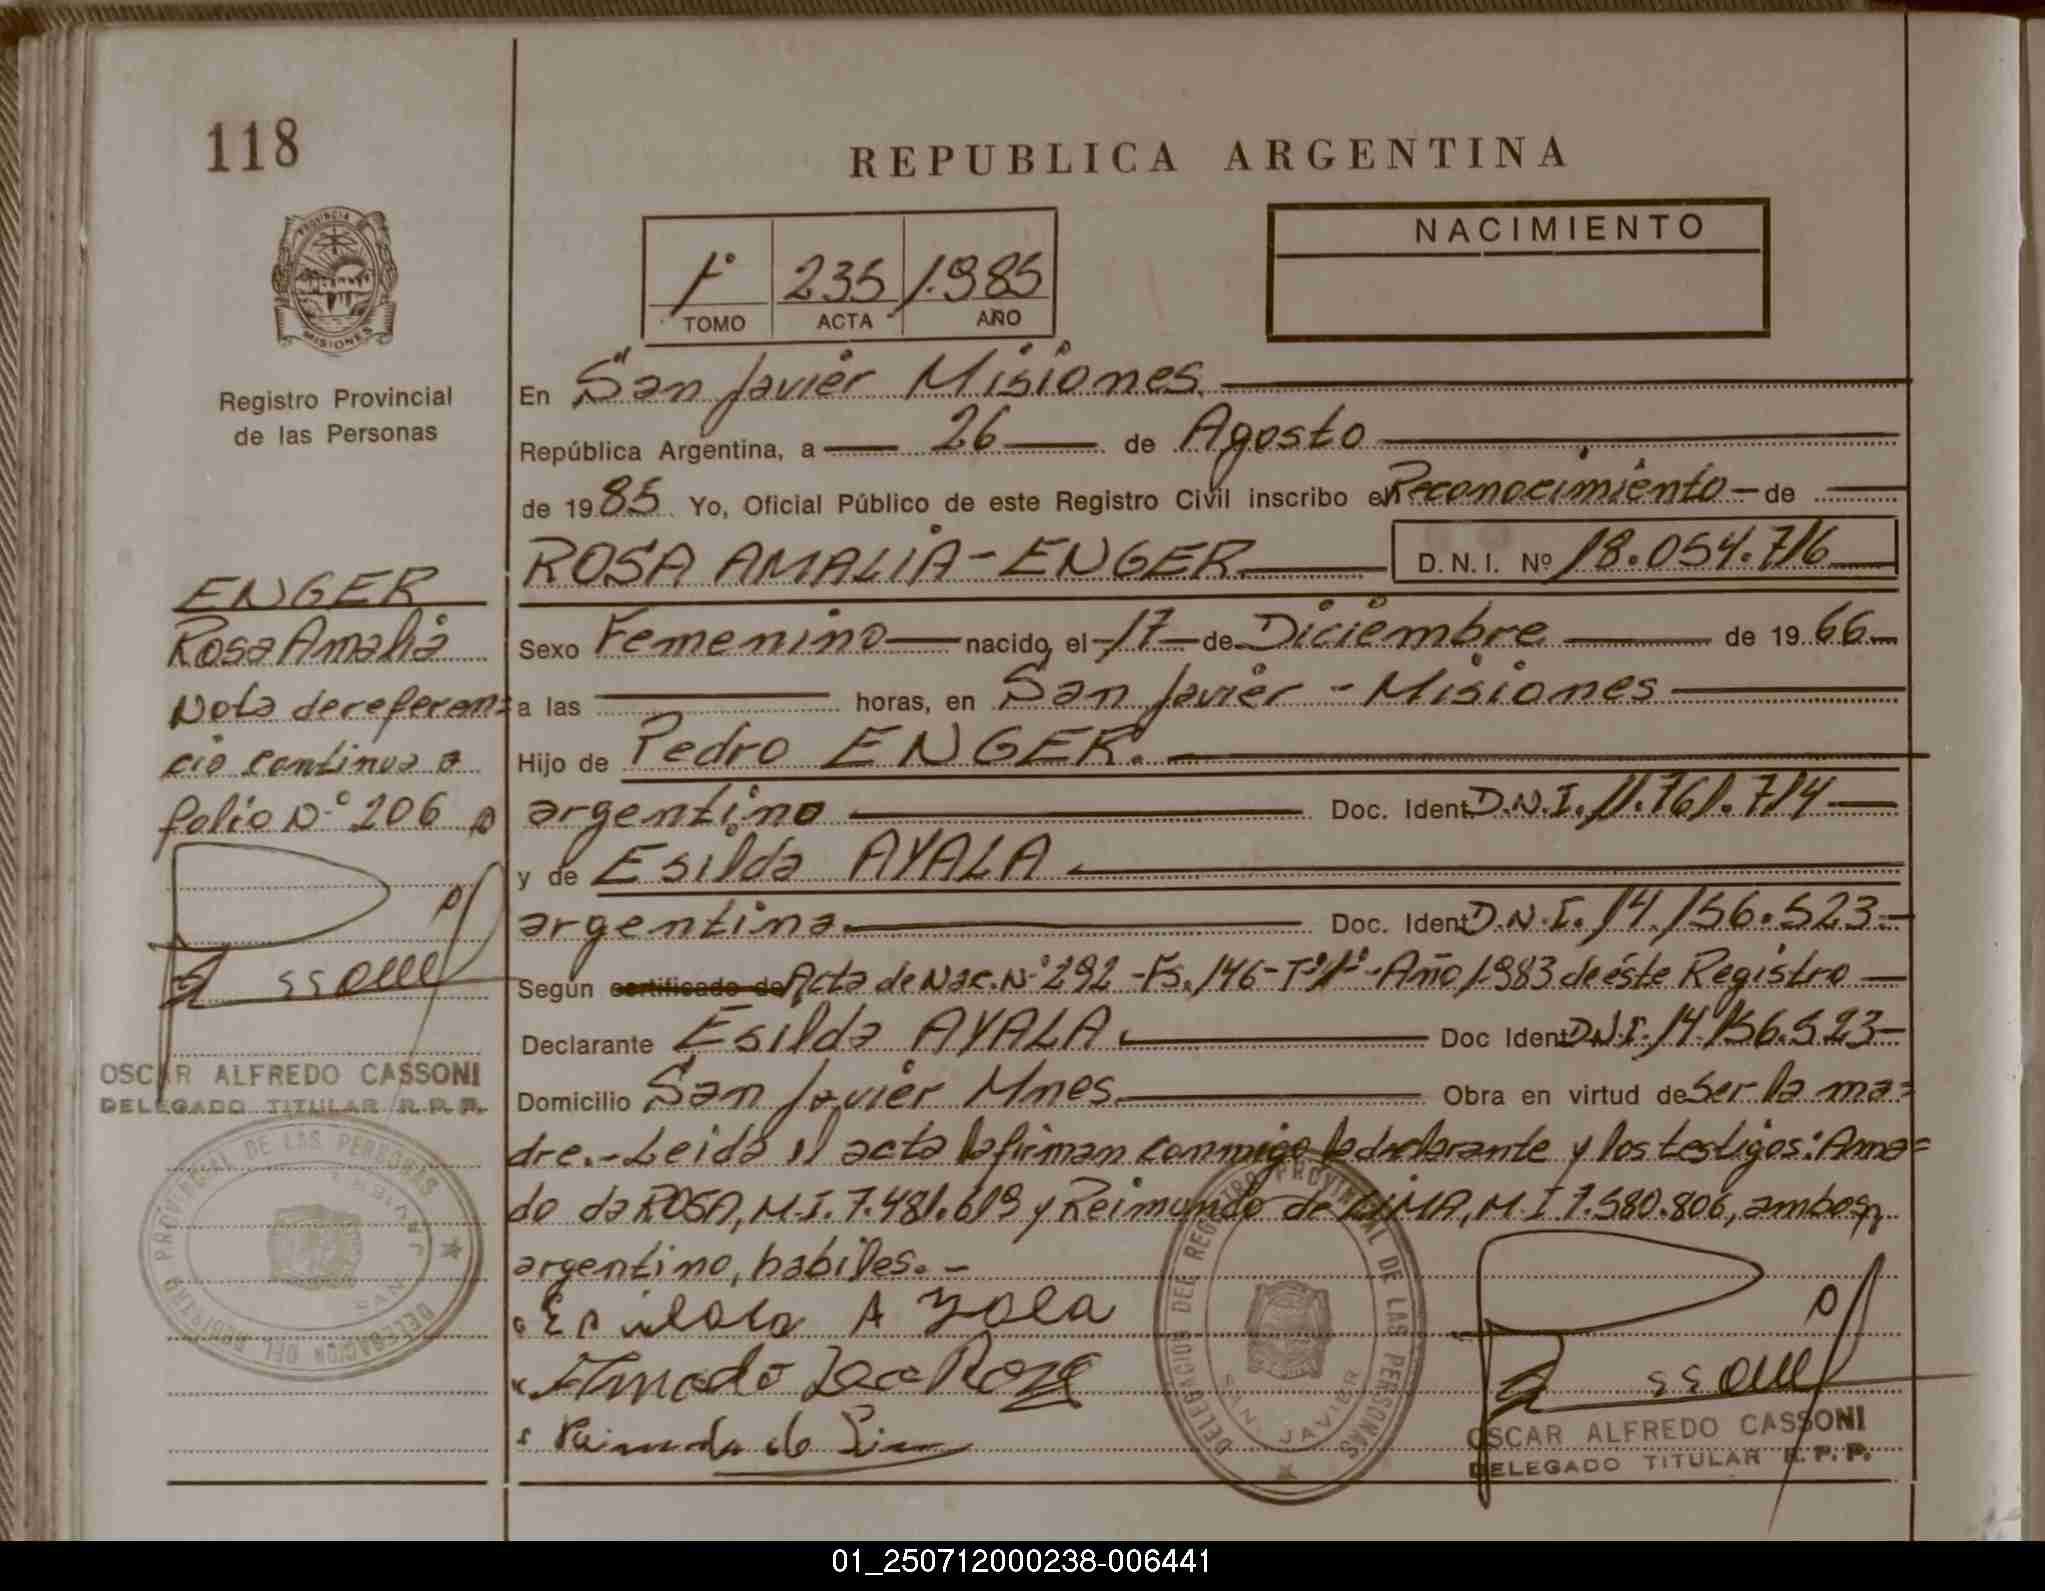 118
REPUBLICA ARGENTINA
PROVINCIA
MISIONES
NACIMIENTO
1º 235 1.985
TOMO ACTA AÑO
Registro Provincial
de las Personas
En San Javier Misiones.
República Argentina, a 26 de Agosto
de 1985 Yo, Oficial Público de este Registro Civil inscribo el Reconocimiento - de
ROSA AMALIA - ENGER D.N.I. Nº 18.054.716
Sexo Femenino nacido, el 17 de Diciembre de 1966
a las horas, en San Javier - Misiones
Hijo de Pedro ENGER.
argentino Doc. Ident D.N.I. 11.761.714
y de Esilda AYALA
argentina Doc. Ident D.N.I. 14.156.523
Según certificado de Acta de Nac. Nº 292 - Fs. 146 - Tº 1º - Año 1983 de éste Registro
Declarante Esilda AYALA Doc Ident D.N.I. 14.156.523
Domicilio San Javier Mnes. Obra en virtud de Ser la ma=
dre.- Leida el acta la firman conmigo la declarante y los testigos: Ama=
do da ROSA, M.I. 7.481.619 y Reimundo de LIMA, M.I 7.580.806, ambos
argentino, habiles.-
Amado da Roza
OSCAR ALFREDO CASSONI
DELEGADO TITULAR R.P.P.
DELEGACION DEL REGISTRO PROVINCIAL DE LAS PERSONAS
SAN JAVIER
ENGER
Rosa Amalia
Nota de referen=
cia continua a
folio Nº 206
OSCAR ALFREDO CASSONI
DELEGADO TITULAR R.P.P.
DELEGACION DEL REGISTRO PROVINCIAL DE LAS PERSONAS
SAN JAVIER
01_250712000238-006441